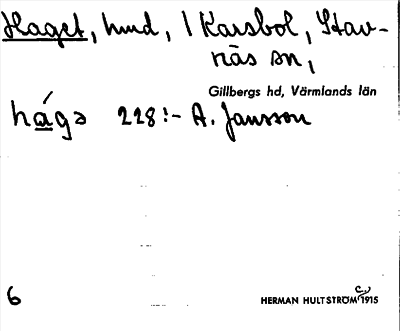 Haget, hmd, 1 Karsbol, Stav-
näs sn,
Gillbergs hd, Värmlands län
hágə 228:- A. Jansson
6 HERMAN HULTSTRÖM 1915